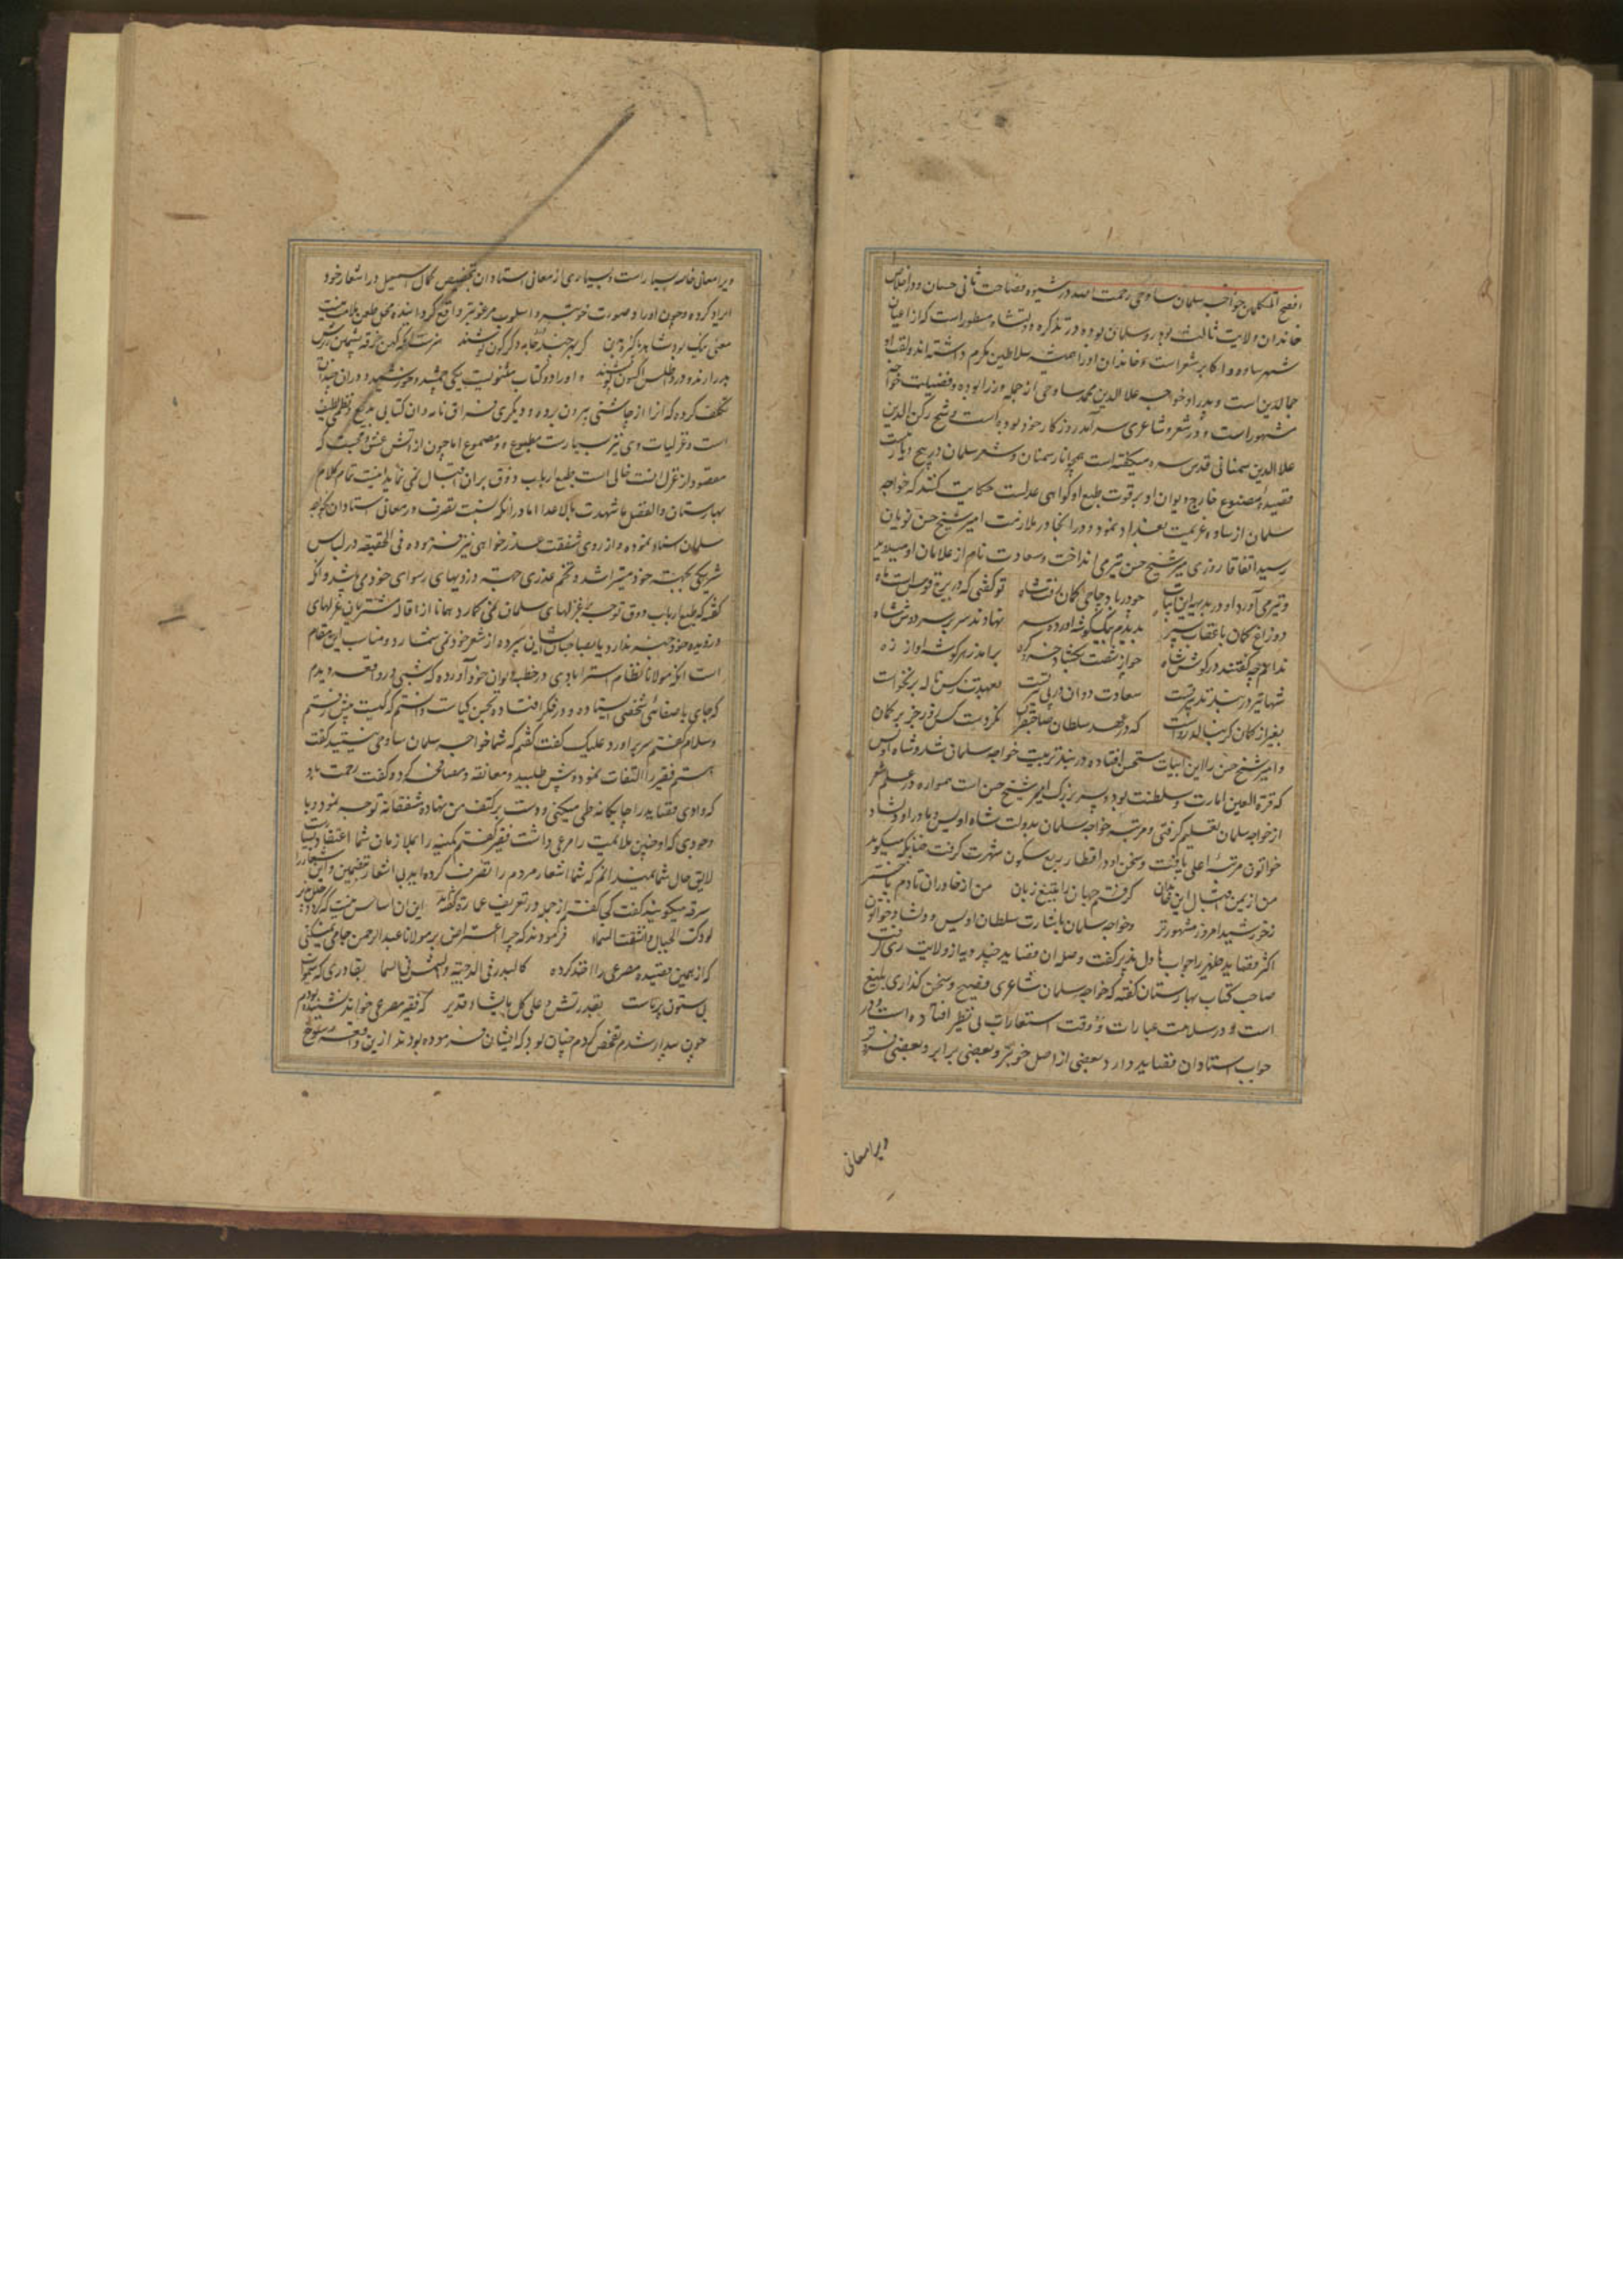 افصح المتکلمین خواجه سلمان ساوجی رحمت الله در شیوه فصاحت ثانی حسان و در اخلاص
خاندان ولایت ثالث بوذر و سلمان بوده در تذکره دولتشاه مسطور است که از اعیان
شهر ساوه و اکابر شعراست و خاندان او را همیشه سلاطین مکرم داشته اند و لقب او
جمالدین است و پدر او خواجه علاالدین محمد ساوجی از جمله وزرا بوده و فضیلت خواجه
مشهور است و در شعر و شاعری سرآمد روزکار خود بوده است شیخ رکن الدین
علاالدین سمنانی قدس سره میکفته است همچو انار سمنان و شعر سلمان در هیچ دیار نیست
قصیده مصنوع خارج دیوان او بر قوت طبع او کواهی عدلست حکایت کنند که خواجه
سلمان از ساوه عزیمت بغداد نمود و در انجا در ملازمت امیر شیخ حسن نویان
رسید اتفاقا روزی امیر شیخ حسن تیر می انداخت و سعادت نام از غلامان او میدوید
و تیر می آورد او در بدیهه این ابیات چو در بار چاچی کمان رفت شاه تو کفتی که در برج قوس است ماه
دو زاغ کمان با عقاب سه پر بدیدم بیک گوشه آورده سر نهادند سر بر سر دوش شاه
ندانم چه کفتند در کوش شاه چو از شصت بکشاد خسرو گره برآمد ز هر کوشه آواز زه
شها تیر در بند تدبیر تست سعادت دوان در پی تیر تست بعهدت ز کس ناله بر نخواست
بغیر از کمان کر بنالد رواست که در عهد سلطان صاحبقران نکردست کس زور جز بر کمان
و امیر شیخ حسن را این ابیات مستحسن افتاده در بند تربیت خواجه سلمان شد و شاه اویس
که قرة العین امارت و سلطنت بود و پسر بزرک امیر شیخ حسن است همواره در علم شعر
از خواجه سلمان تعلیم کرفتی و مرتبه خواجه سلمان بدولت شاه اویس و مادر او دلشاد
خواتون مرتبه اعلی یافت و سخن او در اقطار ربع مسکون شهرت کرفت چنانکه میکوید
من از یمن اقبال این خاندان کرفتم جهان را بتیغ زبان من از خاوران تا در باختر
ز خورشید امروز مشهورتر و خواجه سلمان باشارت سلطان اویس و دلشاد خواتون
اکثر قصاید ظهیر را جواب های دل پذیر کفت و صله آن قصاید چند دیه از ولایت ری کرفت
صاحب کتاب بهارستان کفته که خواجه سلمان شاعری فصیح و سخن کذاری بلیغ
است و در سلاست عبارات و دقت استعارات بی نظیر افتاده است و در
جواب استادان قصاید دارد بعضی از اصل خوبتر و بعضی برابر و بعضی فروتر
ویرا معانی
ویرا معانی خاصه بسیار است و بسیاری از معانی استادان بتخصیص کمال اسمعیل در اشعار خود
ایراد کرده و چون او را در صورت خوبتر و اسلوب مرغوبتر واقع گردانیده محل طعن و ملامت نیست
معنی نیک بود شاهد پاکیزه بدن که بهر چند درو جامه دکرکون پوشند هنرست آنکه کهن خرقه پشمین ز برش
بدر آرند و درو اطلس و اکسون پوشند و او را دو کتاب مثنویست یکی جمشید و خورشید و در آن چندان
تکلف کرده که آنرا از چاشنی بیرون برده و دیکری فراق نامه و آن کتابی بدیع و نظمی لطیف
است و غزلیات وی نیز بسیارست مطبوع و مصنوع اما چون از آتش عشق و محبت که
مقصود از غزل آنست خالی است طبع ارباب ذوق بر آن اقبال نمی نماید اینت تمام کلام
بهارستان والفضل ما شهدت به الاعدا اما در آنکه نسبت تصرف در معانی استادان بخواجه
سلمان اسناد نموده و از روی شفقت عذرخواهی نیز فرموده فی الحقیقه در لباس
شریکی بجهت خود میتراشد و تخم عذری جهت دزدیهای رسوای خود می پاشد و آنکه
کفته که طبع ارباب ذوق توجه بغزلهای سلمان نمی کمارد همانا از اقاله مشتریان غزلهای
دزدیده خود خبر ندارد یا بصاحبان شان سپرده از شعر خود نمی شمارد و مناسب این مقام
است آنکه مولانا نظام استرابادی در خطبه دیوان خود آورده که شبی در واقعه دیدم
که جای با صفائی شخصی ایستاده و در فکر افتاده تخمین کیاست دانستم که کیست پیش رفتم
و سلام گفتم سر برآورد و علیک کفت کفتم که شما خواجه سلمان ساوجی نیستید کفت
هستم فقیر را التفات نمود و پیش طلبید و معانقه و مصافحه کرد و کفت رحمت باد
که وادی قصاید را چابکانه طی میکنی و دست بر کتف من نهاده شفقانه توجه نمود و با
وجودی که او چنین ملائمیت را مرعی داشت فقیر کفتم کمینه را بملازمان شما اعتقادیست
لایق حال شما نمیدانم که شما اشعار مردم را تصرف کرده اید بی اشعار تضمین و این اشعار را
سرقه میکویند کفت کی کفتم از جمله در تعریف عمارة گفته اید این آن اساس نیست که کردد خلل پذیر
لو دکت الجبال و انشقت السماء فرمودند که چرا اعتراض بر مولانا عبدالرحمن جامی نمیکنی
که از همین قصیده مصرعی را اخذ کرده کالبدر فی الدجیته والشمس فی السما بقادری که سموات
بی ستون برپاست بقدرتش و علی کل ما یشاء قدیر که فقیر مصرعی خواند نشنیده بودم
چون بیدار شدم تفحص کردم چنان بود که ایشان فرموده بودند ازین واقعه رسوخ